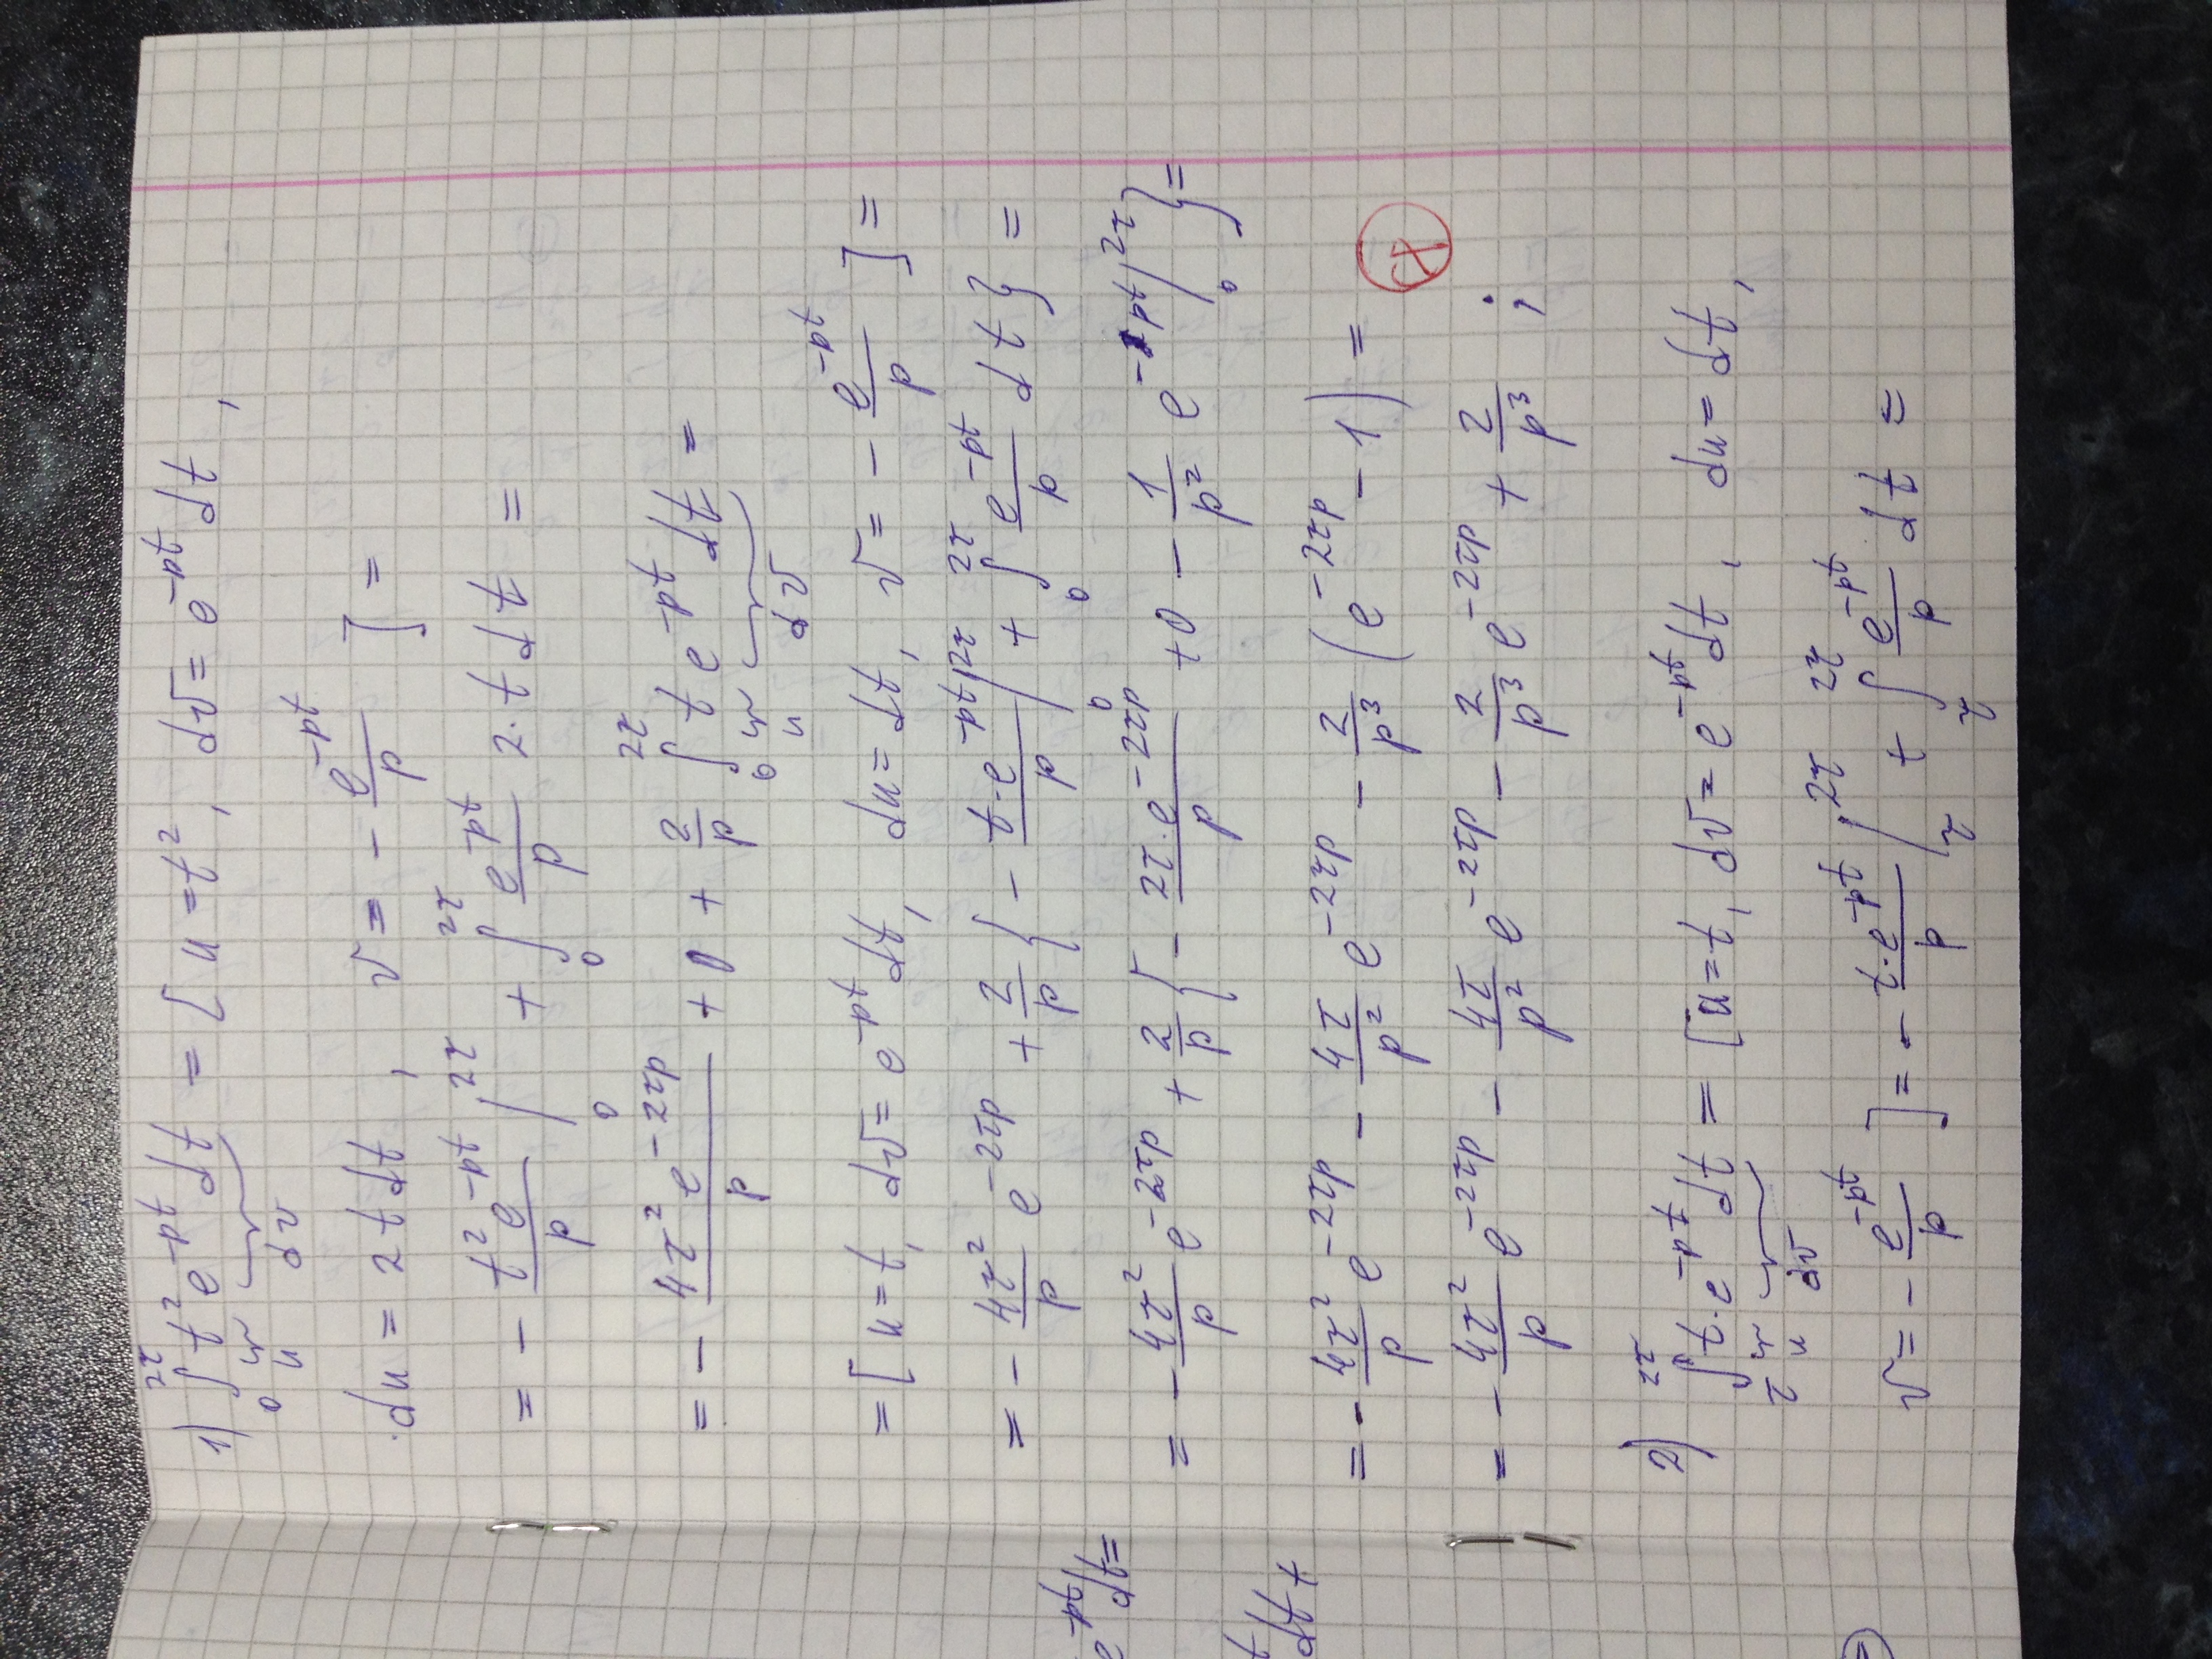 1) ∫₀^{2τ} t² e^{-pt} dt = [ u = t², dv = e^{-pt} dt,
u dv
du = 2t dt, v = - e^{-pt}/p ] =
= - t² e^{-pt}/p |₀^{2τ} + ∫₀^{2τ} e^{-pt}/p 2·t dt =
= - 4τ² e^{-2τp}/p + 0 + 2/p ∫₀^{2τ} t e^{-pt} dt =
u dv
= [ u = t, dv = e^{-pt} dt, du = dt, v = - e^{-pt}/p ] =
= - 4τ²/p e^{-2τp} + 2/p { - t·e^{-pt}/p |₀^{2τ} + ∫₀^{2τ} e^{-pt}/p dt } =
= - 4τ²/p e^{-2τp} + 2/p { - 2τ·e^{-2τp}/p + 0 - 1/p² e^{-pt} |₀^{2τ} } =
= - 4τ²/p e^{-2τp} - 4τ/p² e^{-2τp} - 2/p³ ( e^{-2τp} - 1 ) =
= - 4τ²/p e^{-2τp} - 4τ/p² e^{-2τp} - 2/p³ e^{-2τp} + 2/p³ ;
2) ∫_τ^{2τ} t·e^{-pt} dt = [ u = t, dv = e^{-pt} dt, du = dt,
u dv
v = - e^{-pt}/p ] = - t·e^{-pt}/p |_τ^{2τ} + ∫_τ^{2τ} e^{-pt}/p dt =
e^{-pt} dt =
dt +